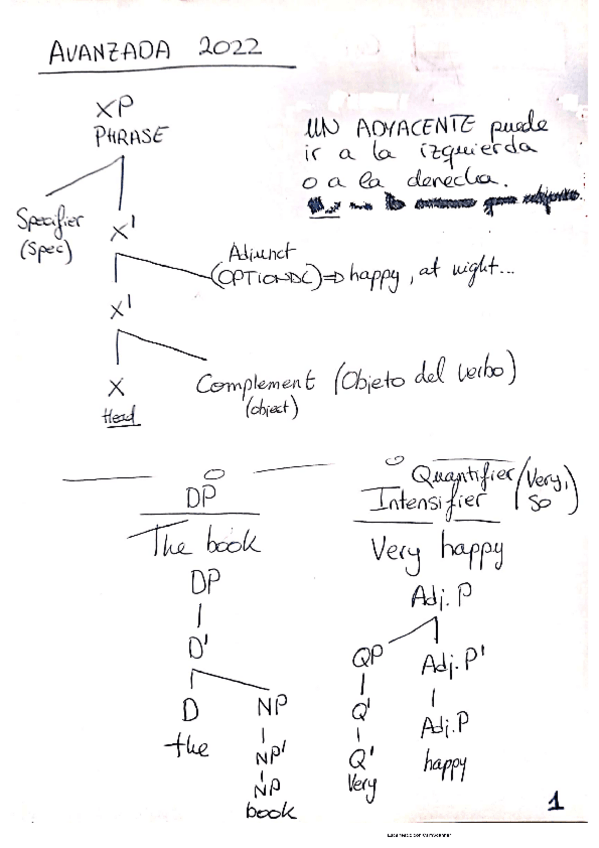 AVANZADA 2022
XP
PHRASE
UN ADYACENTE puede
ir a la izquierda
o a la derecha.
Specifier
(Spec)
X'
Adjunct
(OPTIONAL) => happy, at night...
X'
X
Head
Complement (Objeto del verbo)
(object)
DP
The book
DP
D'
D
the
NP
NP'
NP
book
Quantifier (Very,
Intensifier So)
Very happy
Adj. P
QP
Adj. P'
Q'
Adj. P
Q'
happy
Very
1